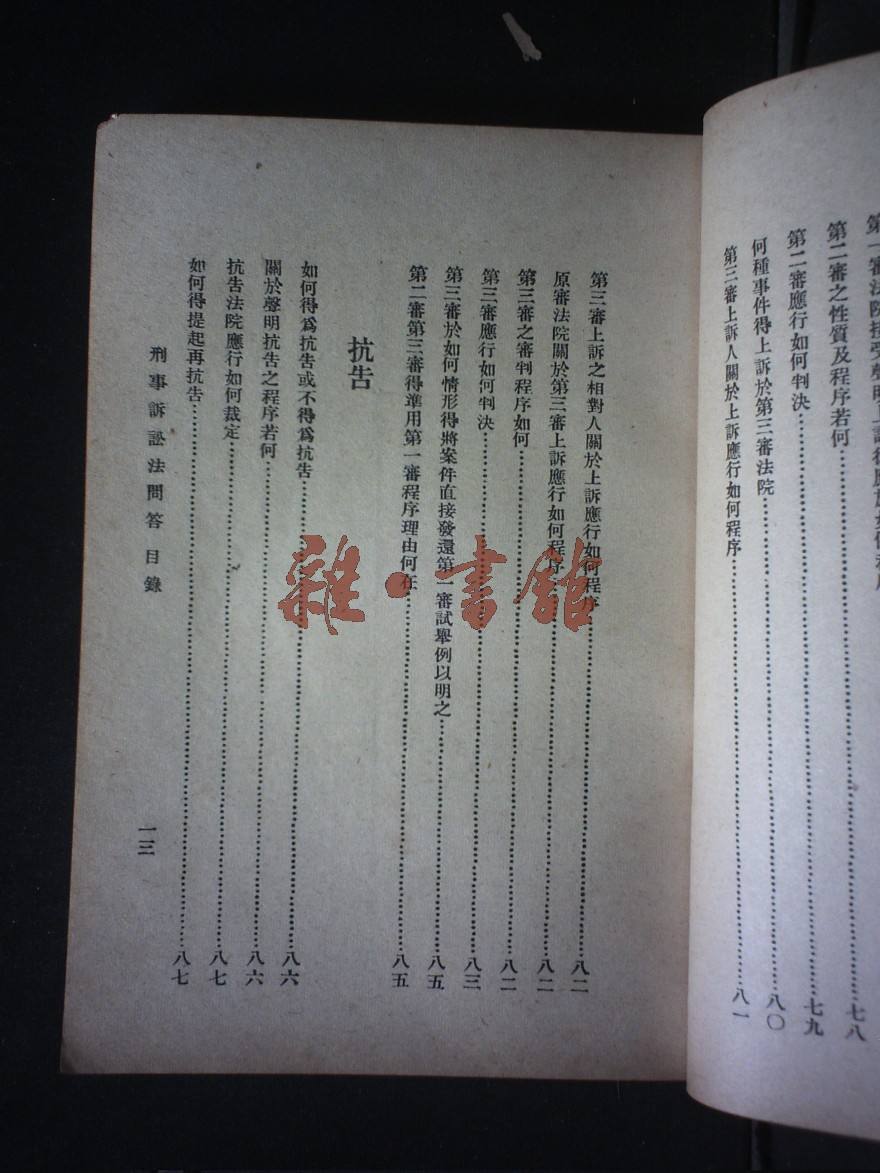 第二審之性質及程序若何……七八
第二審應行如何判決……七九
何種事件得上訴於第三審法院……八〇
第三審上訴人關於上訴應行如何程序……八一
第三審上訴之相對人關於上訴應行如何程序……八二
原審法院關於第三審上訴應行如何程序……八二
第三審之審判程序如何……八二
第三審應行如何判決……八三
第三審於如何情形得將案件直接發還第一審試舉例以明之……八五
第二審第三審得準用第一審程序理由何在……八五
抗告
如何得爲抗告或不得爲抗告……八六
關於聲明抗告之程序若何……八六
抗告法院應行如何裁定……八七
如何得提起再抗告……八七
刑事訴訟法問答 目錄
一三
雜·書館